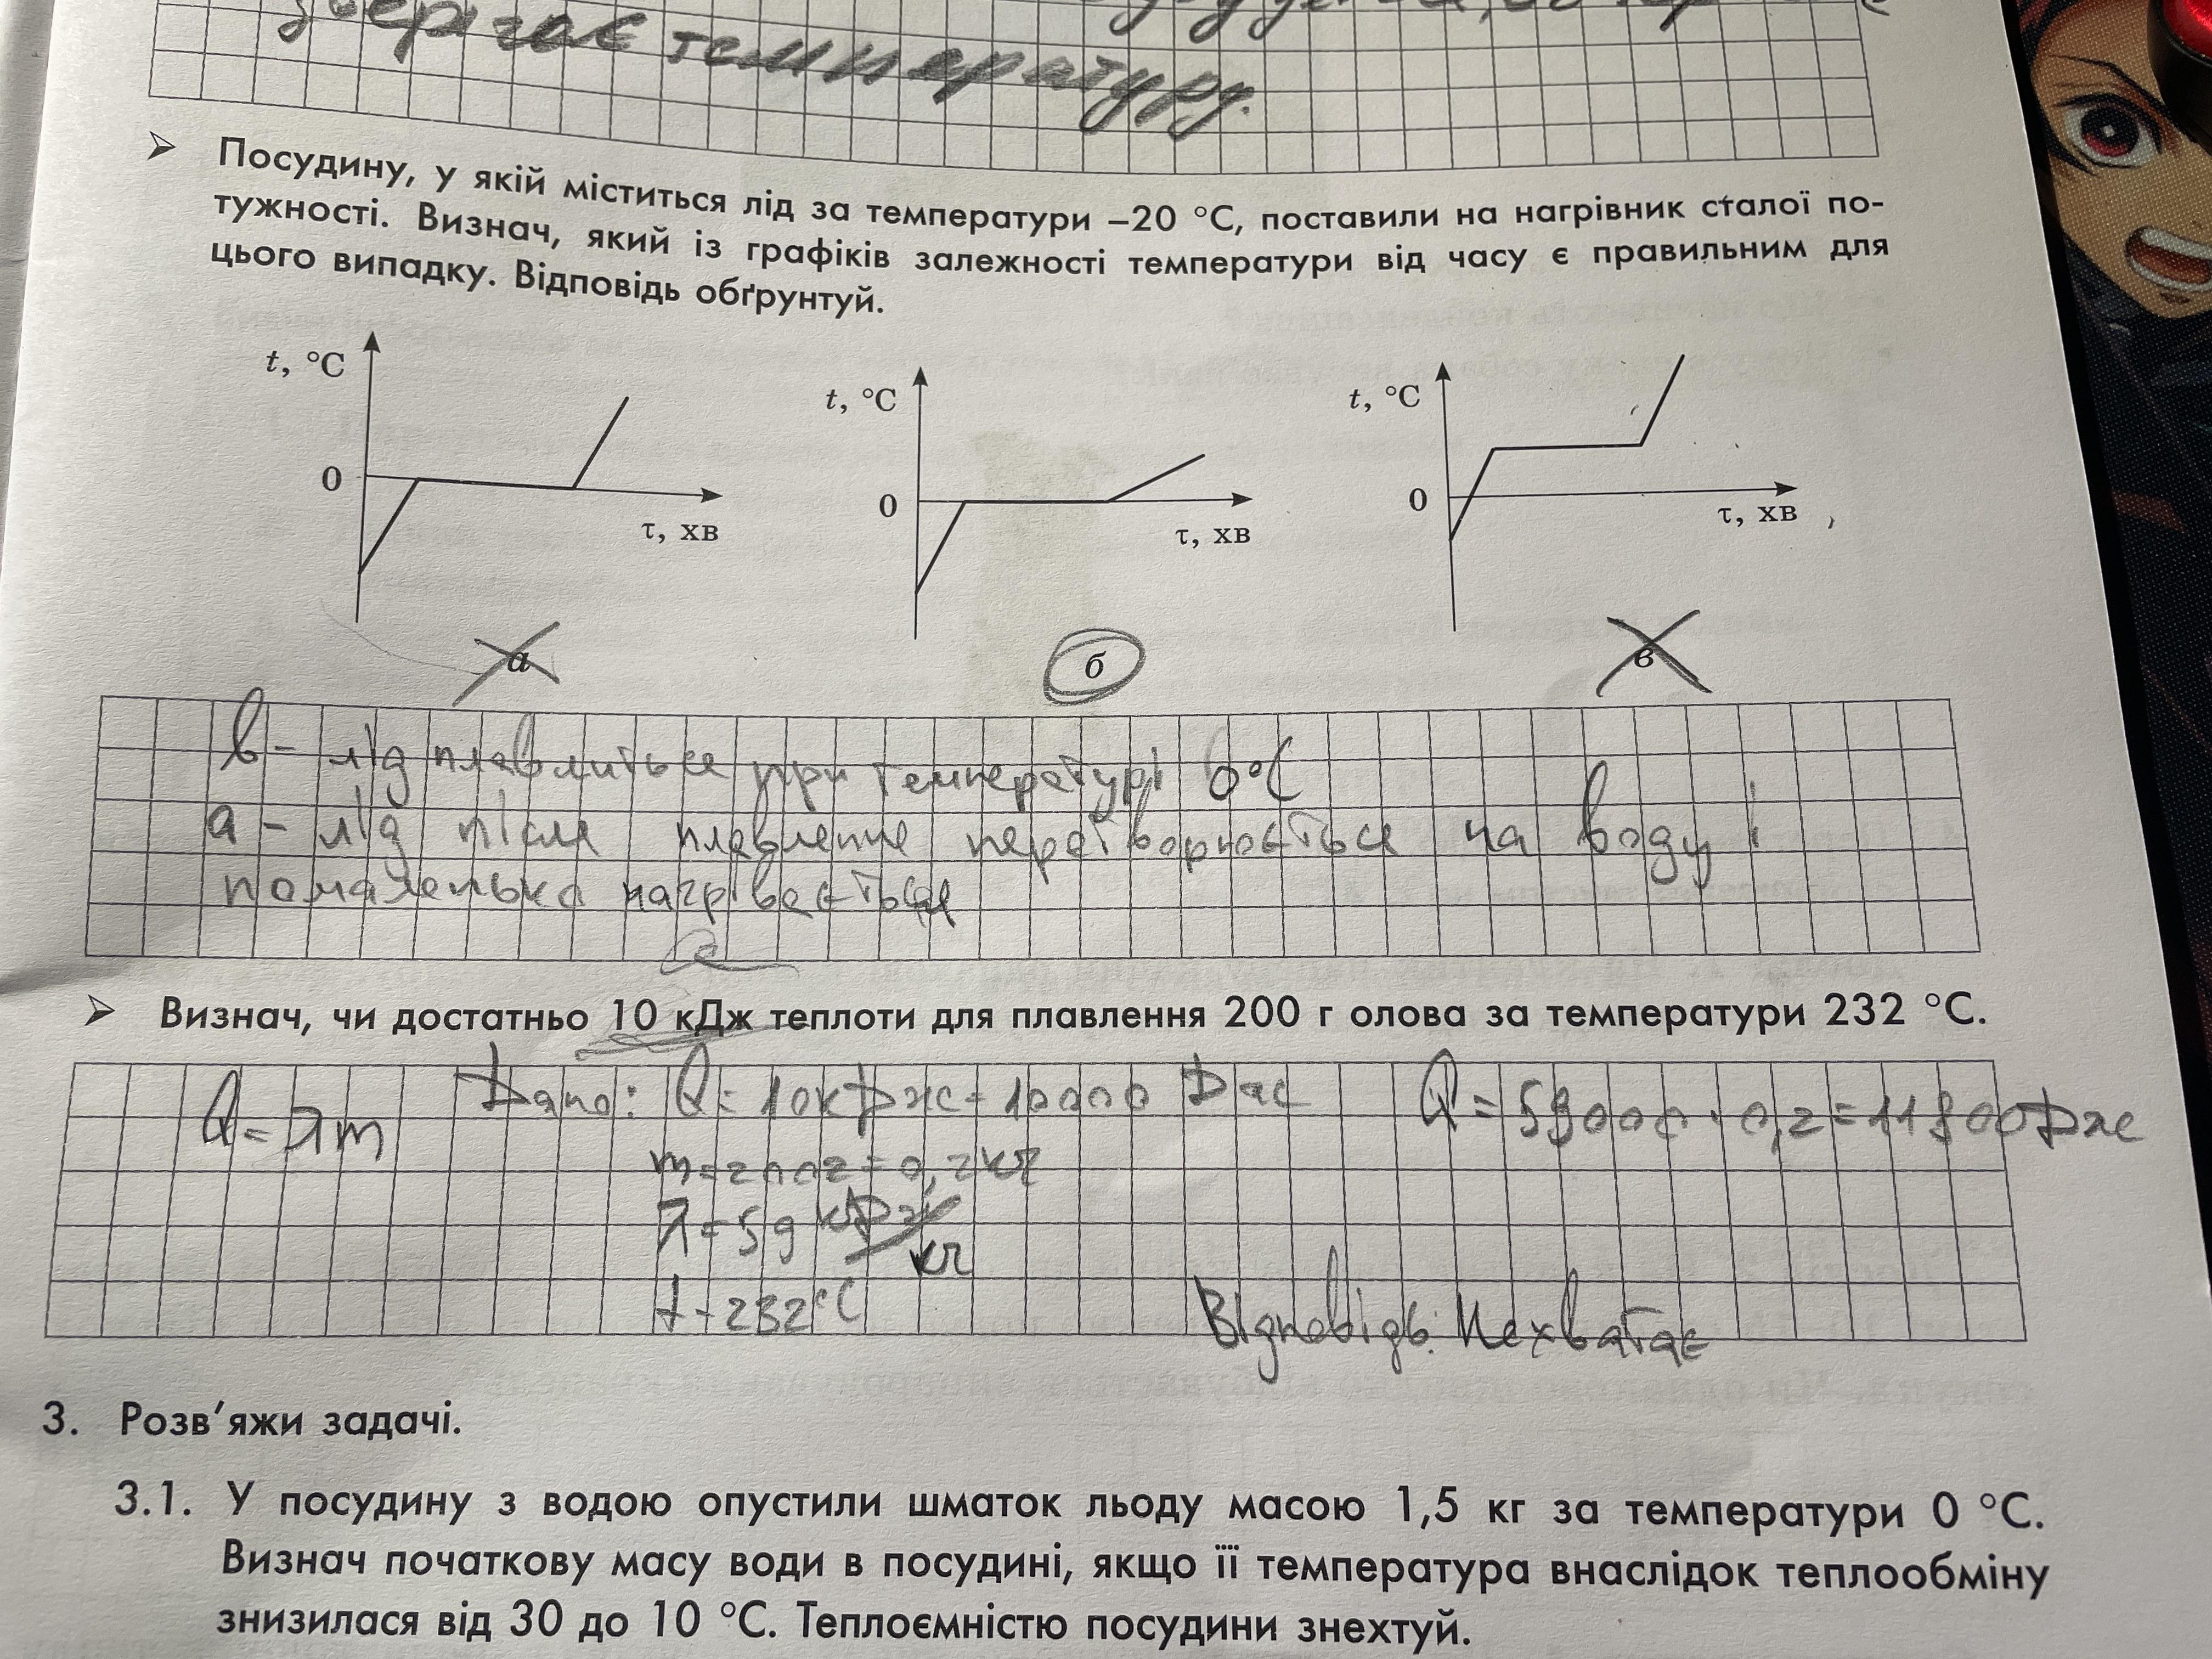 зберігає температуру.
➢ Посудину, у якій міститься лід за температури –20 °C, поставили на нагрівник сталої по-
тужності. Визнач, який із графіків залежності температури від часу є правильним для
цього випадку. Відповідь обґрунтуй.
t, °C
0
τ, хв
а
t, °C
0
τ, хв
б
t, °C
0
τ, хв
в
в – лід плавлиться при температурі 0°C
а – лід після плавленне перетворюється на воду і
помаленька нагрівається
➢ Визнач, чи достатньо 10 кДж теплоти для плавлення 200 г олова за температури 232 °C.
Q = λm
Дано: Q = 10кДж = 10000 Дж
m = 200г = 0,2кг
λ = 59 кДж/кг
t - 232°C
Q = 59000 · 0,2 = 11800Дж
Відповідь: Нехватає
3. Розв’яжи задачі.
3.1. У посудину з водою опустили шматок льоду масою 1,5 кг за температури 0 °C.
Визнач початкову масу води в посудині, якщо її температура внаслідок теплообміну
знизилася від 30 до 10 °C. Теплоємністю посудини знехтуй.